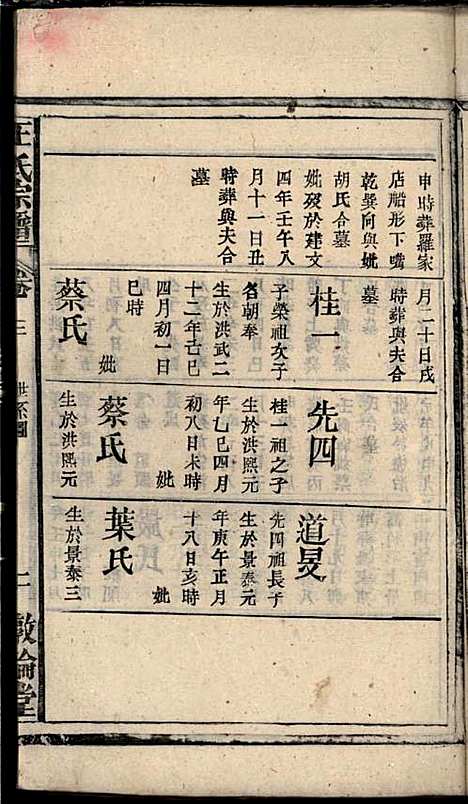 申時葬羅家
店船形下嘴
乾巽向與妣
胡氏合墓
妣歿於建文
四年壬午八
月十一日丑
時葬與夫合
墓
月二十日戌
時葬與夫合
墓
桂一
子榮祖次子
名朝奉
生於洪武二
十二年己巳
四月初一日
巳時
妣
蔡氏
先四
桂一祖之子
生於洪熙元
年乙巳四月
初八日未時
妣
蔡氏
生於洪熙元
道旻
先四祖長子
生於景泰元
年庚午正月
十八日亥時
妣
葉氏
生於景泰三
汪氏宗譜
卷
世系圖
敦倫堂